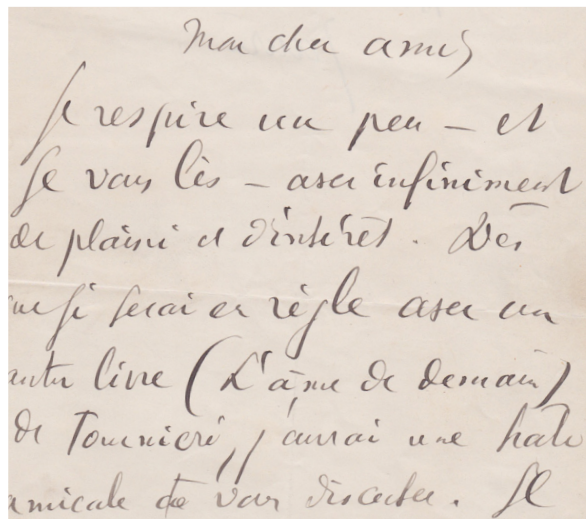 Mon cher ami,
Je respire un peu – et
Je vous lis – avec infiniment
de plaisir et d'intérêt. Dès
que je serai en règle avec un
autre livre (L'âme de demain)
de , j'aurai une hâte
amicale de vous discuter. Je